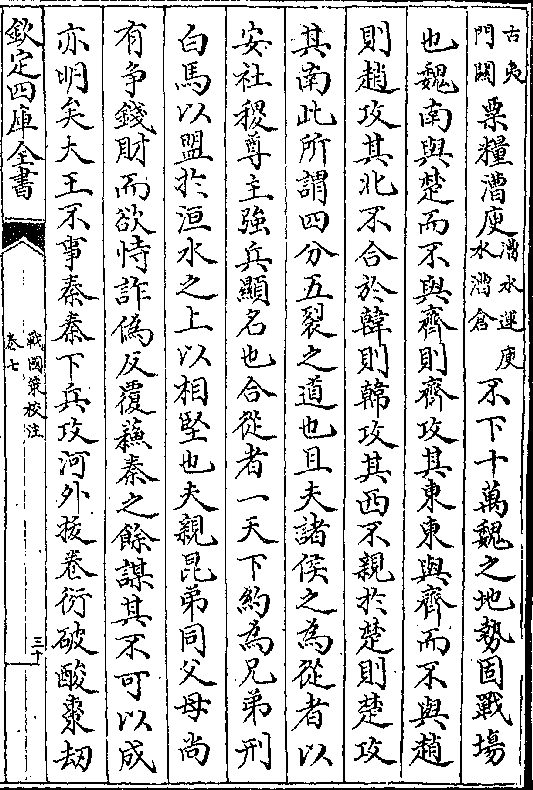 古夷門關粟糧漕庾漕水運庾水漕倉不下十萬魏之地勢固戰場
也魏南與楚而不與齊則齊攻其東東與齊而不與趙
則趙攻其北不合於韓則韓攻其西不親於楚則楚攻
其南此所謂四分五裂之道也且夫諸侯之為從者以
安社稷尊主強兵顯名也合從者一天下約為兄弟刑
白馬以盟於洹水之上以相堅也夫親昆弟同父母尚
有争錢財而欲恃詐偽反覆蘇秦之餘謀其不可以成
亦明矣大王不事秦秦下兵攻河外拔卷衍破酸棗刼
欽定四庫全書
戰國策校注
卷七
三十